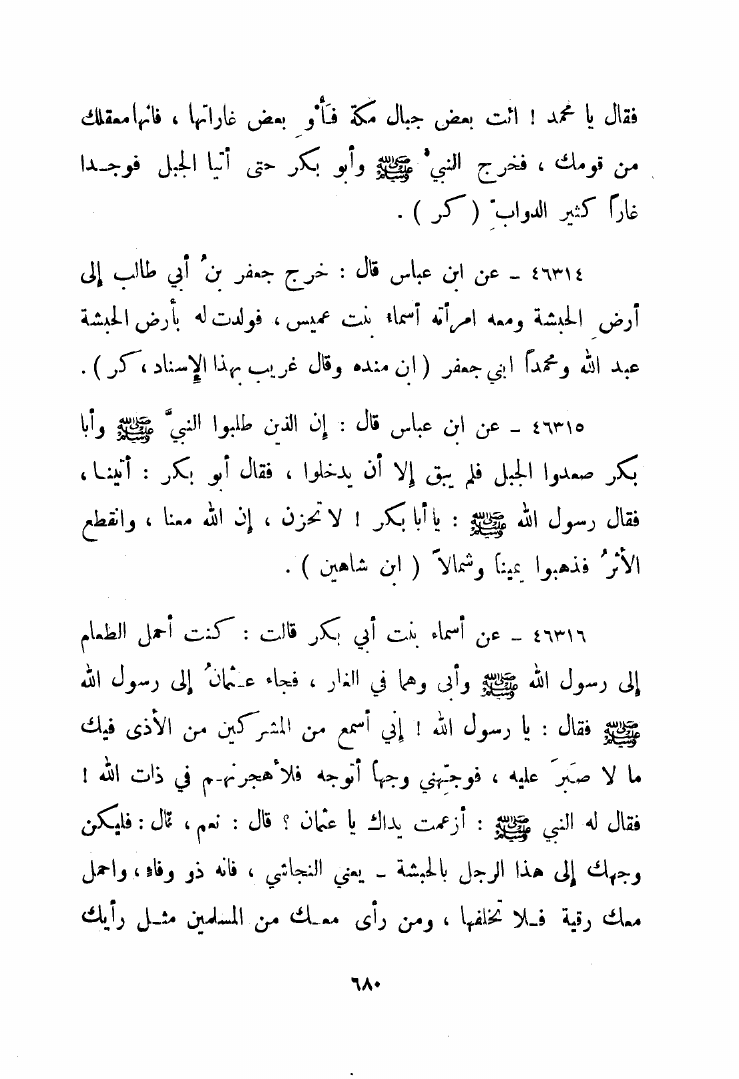 فقال يا محمد ! ائت بعض جبال مكة فَأْوِ بعض غاراتها ، فانها معقلك
من قومك ، فخرج النبيُّ ﷺ وأبو بكر حتى أتيا الجبل فوجدا
غاراً كثير الدوابِّ ( كر ) .
٤٦٣١٤ ـ عن ابن عباس قال : خرج جعفر بنُ أبي طالب إلى
أرضِ الحبشة ومعه امرأته أسماءُ بنت عميس ، فولدت له بأرض الحبشة
عبد الله ومحمداً ابني جعفر ( ابن منده وقال غريب بهذا الإسناد ، كر ) .
٤٦٣١٥ ـ عن ابن عباس قال : إن الذين طلبوا النبيَّ ﷺ وأبا
بكر صعدوا الجبل فلم يبق إلا أن يدخلوا ، فقال أبو بكر : أتينا ،
فقال رسول الله ﷺ : يا أبا بكر ! لا تحزن ، إن الله معنا ، وانقطع
الأثرُ فذهبوا يميناً وشمالاً ( ابن شاهين ) .
٤٦٣١٦ ـ عن أسماء بنت أبي بكر قالت : كنت أحمل الطعام
إلى رسول الله ﷺ وأبى وهما في الغار ، فجاء عثمانُ إلى رسول الله
ﷺ فقال : يا رسول الله ! إني أسمع من المشركين من الأذى فيك
ما لا صبرَ عليه ، فوجهني وجهاً أتوجه فلأهجرنهم في ذات الله !
فقال له النبي ﷺ : أزعمت بداك يا عثمان ؟ قال : نعم ، قال : فليكن
وجهك إلى هذا الرجل بالحبشة ـ يعني النجاشي ، فانه ذو وفاء ، واحمل
معك رقية فلا تخلفها ، ومن رأى معك من المسلمين مثل رأيك
٦٨٠